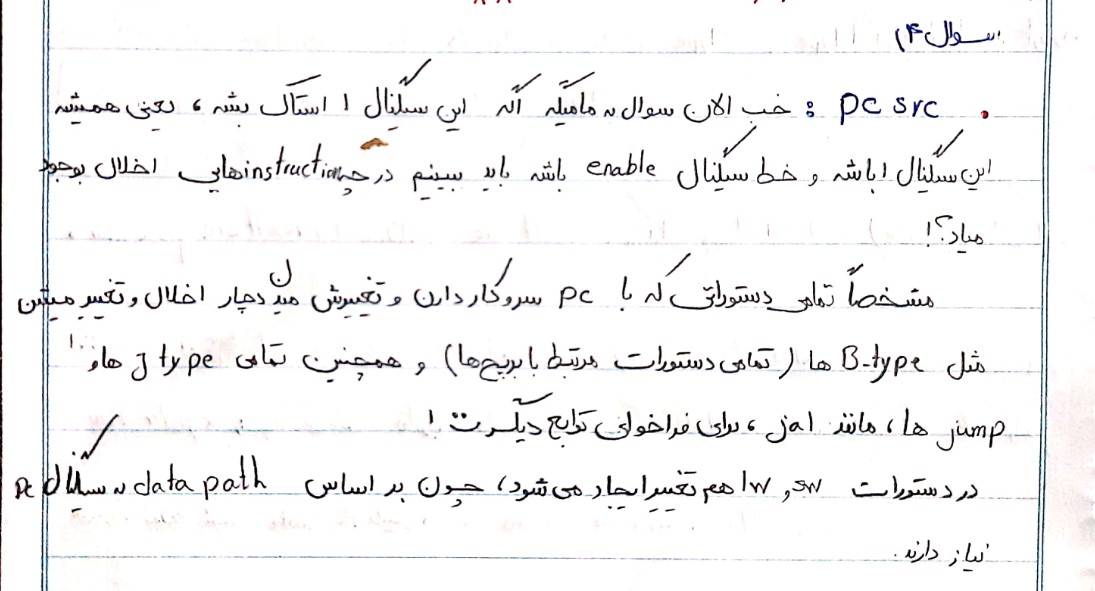 سوال ۴)
. pc src : خب الان سوال به ما میگه اگه این سیگنال ۱ استاک بشه ، یعنی همیشه
این سیگنال ۱ باشه و خط سیگنال enable باشه باید ببینم در چه instruction هایی اخلال بوجود
میاد؟!
مشخصاً تمامی دستوراتی که با pc سروکار دارن و تغییرش میدن دچار اخلال و تغییر میشن
مثل B-type ها (تمامی دستورات مرتبط با برنچ‌ها) و همچنین تمامی J type ها و...!
jump ها ، مانند jal ، برای فراخوانی توابع دیگر
در دستورات sw و lw هم تغییر ایجاد می‌شود، چون بر اساس data path به سیگنال pc
نیاز دارند.